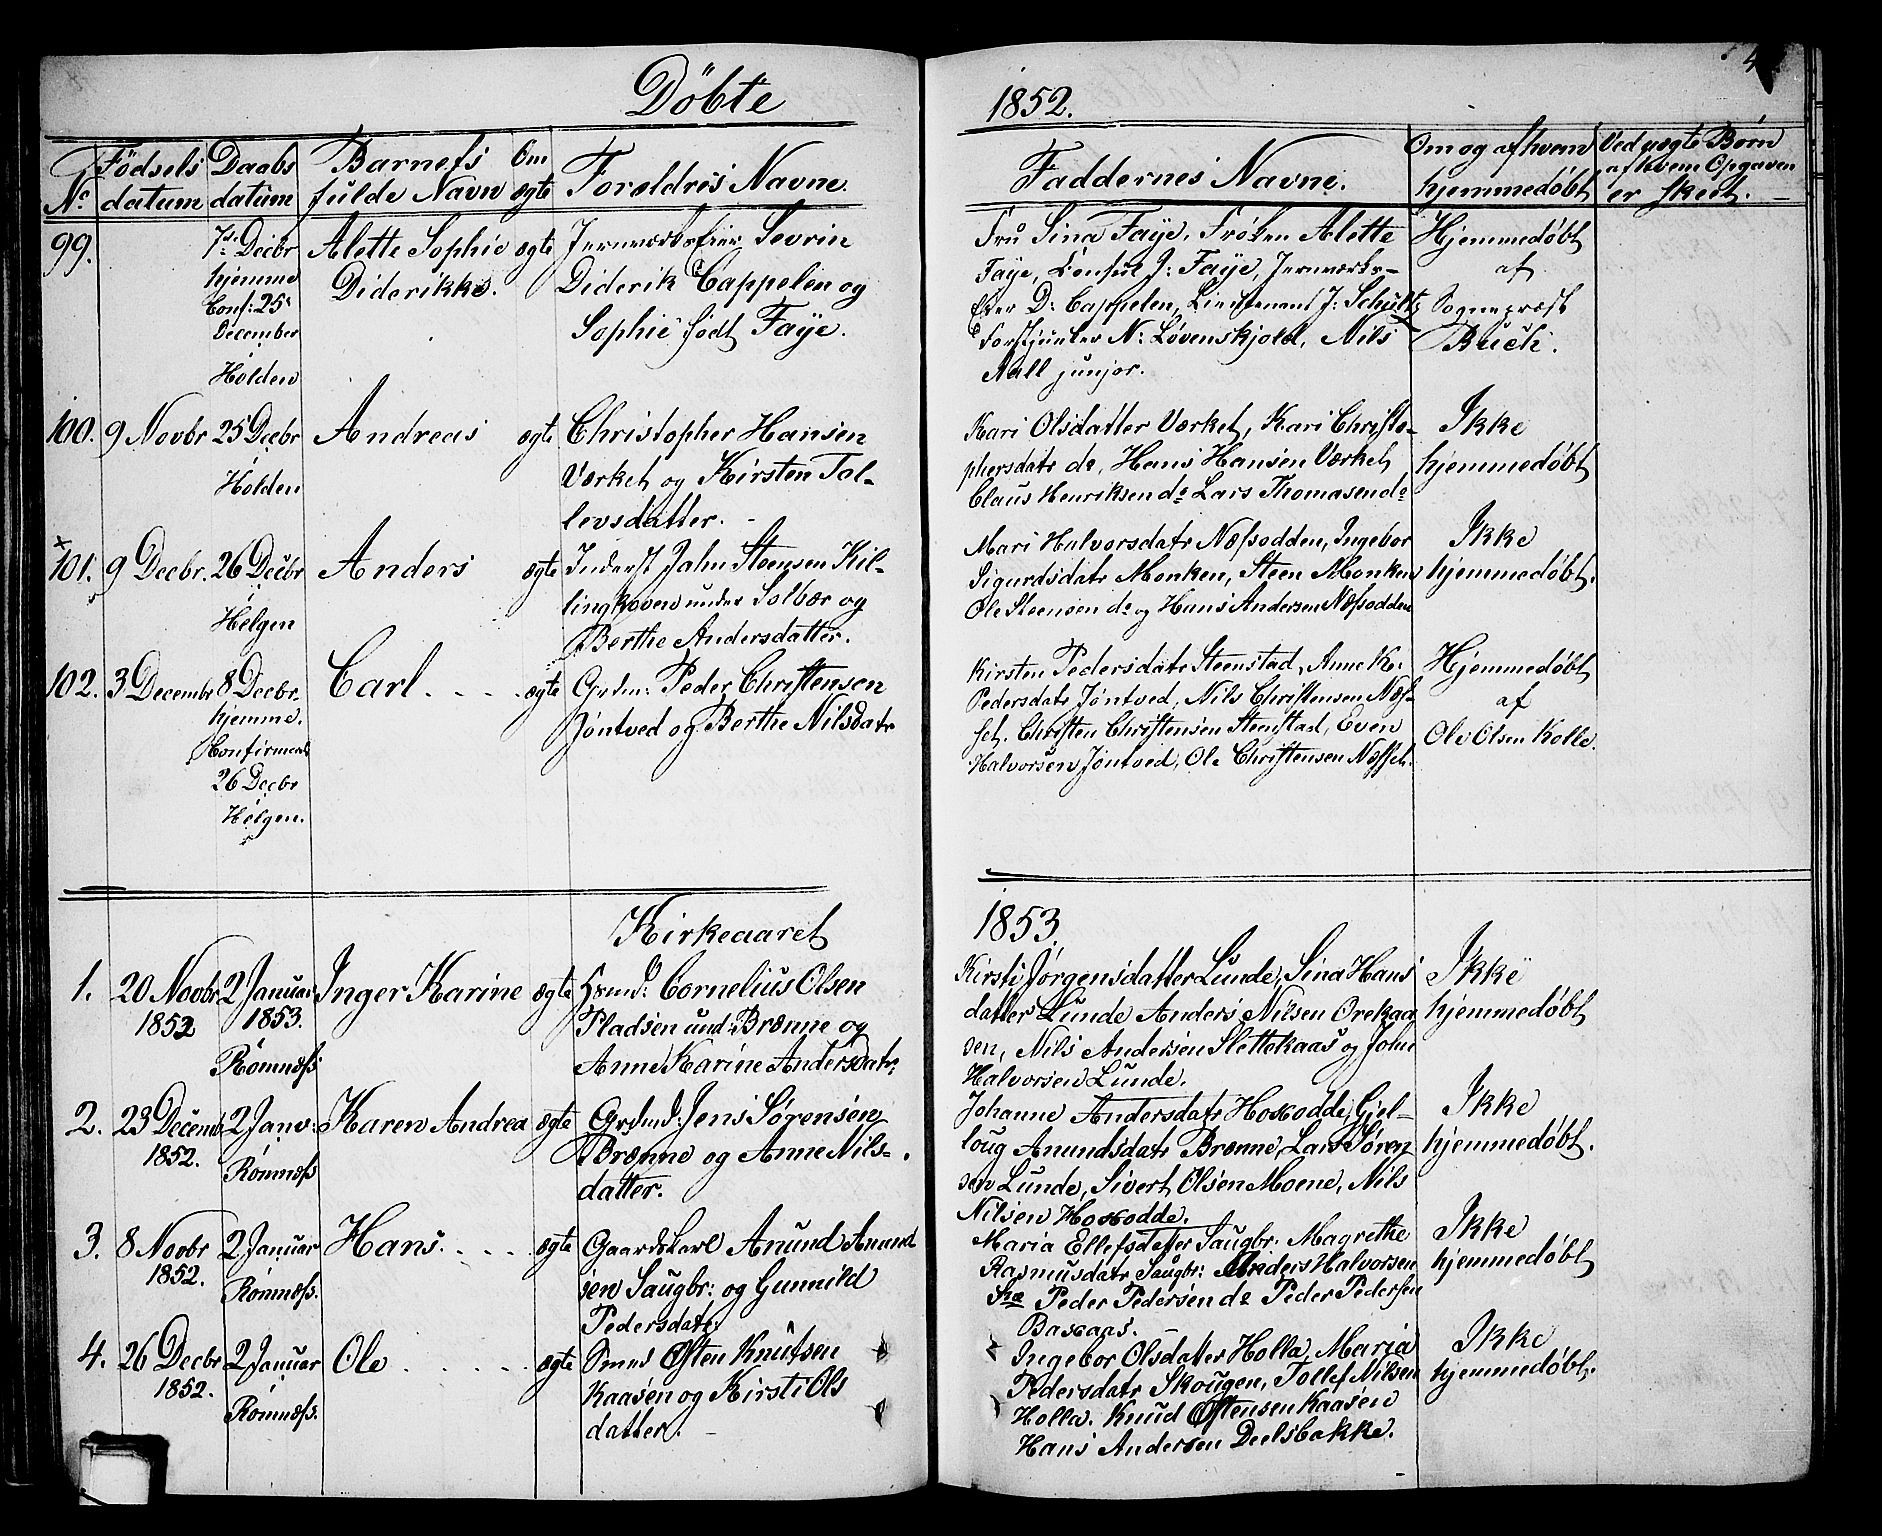 Döbte
1852.
No.
Födsels
datum
Daabs
datum
Barnets
fulde Navn
Om
ægte
Forældres Navne.
Faddernes Navne.
Om og af hvem
hjemmedøbt
Ved uægte Børn
af hvem Opgaven
er skeet.
99.
7de Decbr
hjemme
Conf: 25
December
Holden
Alette Sophie
Diderikke.
ægte
Jernværkseier Sevrin
Diderik Cappelen og
Sophie født Faye.
Fru Sina Faye, Frøken Alette
Faye, J: Faye, Jernværks-
Eier D: Cappelen, Lieutenant J: Schultz
Forstjunker N: Løvenskjold, Nils
Aall junjor.
Hjemmedøbt
af
Sognepræst
Buch.
100.
9 Novbr
25 Decbr
Holden
Andreas
ægte
Christopher Hansen
Værket og Kirsten Tol-
levsdatter.
Kari Olsdatter Værket, Kari Christo-
phersdatr do, Hans Hansen Værket
Claus Henriksen do Lars Thomasen do
Ikke
hjemmedøbt
101.
9 Decbr.
26 Decbr
Helgen
Anders
ægte
Inderst Jahn Steensen Kil-
lingkoven under Solbær og
Berthe Andersdatter.
Mari Halvorsdatr Næsodden, Ingebor
Sigurdsdatr Monken, Steen Monken
Ole Steensen do og Hans Andersen Næsodden
Ikke
hjemmedøbt.
102.
3 Decembr
8 Decbr.
hjemme.
Confirmeret
26 Decbr
Helgen.
Carl
ægte
Grdm: Peder Christensen
Jøntved og Berthe Nilsdatr
Kirsten Pedersdatr Steenstad, Anne K:
Pedersdatr Jøntved, Nils Christensen Næs-
set. Christen Christensen Stenstad, Even
Halvorsen Jøntved, Ole Christensen Næsset.
Hjemmedøbt
af
Ole Olsen Kolle.
Kirkeaaret
1853.
1.
20 Novbr
1852
2 Januar
1853.
Römnæss
Inger Karine
ægte
Hsmd: Cornelius Olsen
Pladsen und: Brænne og
Anne Karine Andersdatr.
Kirsti Jørgensdatter Lunde, Sina Hans
datter Lunde Anders Nilsen Orekaa
sen, Nils Andersen Slettekaas og John
Halvorsen Lunde.
Ikke
hjemmedøbt
2.
23 Decemb
1852.
2 Janv:
Römnæss
Karen Andrea
ægte
Grdmd: Jens Sørensen
Brænne og Anne Nils-
datter.
Johanne Andersdatr Hoxodde, Gjel-
loug Anundsdatr Brænne, Lars Søren
sen Lunde, Sivert Olsen Moene, Nils
Nilsen Hoxodde.
Ikke
hjemmedøbt.
3.
8 Novbr
1852.
2 Januar
Römnæss.
Hans
ægte
Gaardskarl Anund Anund
sen Saugbr: og Gunnild
Pedersdatr
Maria Ellefsdatter Saugbr: Magrethe
Rasmusdatr Saugbr: Anders Halvorsen
Peder Pedersen do Peder Pedersen
Baxaas.
Ikke
hjemmedøbt
4.
26 Decbr
1852.
2 Januar
Römnæss.
Ole
ægte
Smed Østen Knutsen
Kaasen og Kirsti Ols
datter.
Ingebor Olsdatter Holla, Maria
Pedersdatr Skougen, Tollef Nilsen
Holla. Knud Østensen Kaasen
Hans Andersen Deelsbakke.
Ikke
hjemmedøbt.